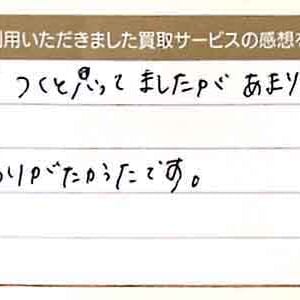 利用いただきました買取サービスの感想を
つくと思ってましたが あまり
りがたかったです。